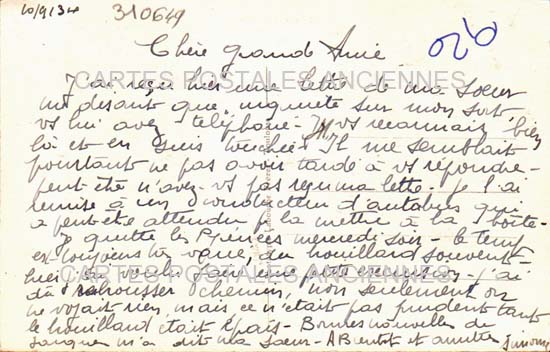 10/9/34
310649
Chère grande Amie
J'ai reçu hier une lettre de ma soeur
me disant que, inquiète sur mon sort,
vs lui avez téléphoné - Je vs reconnais bien
là et en suis touchée - Il me semblait
pourtant ne pas avoir tardé à vs répondre -
peut être n'avez-vs pas reçu ma lettre - Je l'ai
remise à un conducteur d'autobus qui
a peut être attendu p. la mettre à la boîte -
Je quitte les Pyrénées mercredi soir - le temps
est toujours très , du brouillard souvent -
hier j'ai voulu faire une petite excursion - j'ai
dû rebrousser chemin, non seulement on
ne voyait rien, mais ce n'était pas prudent tant
le brouillard était épais - Bonnes nouvelles de
m'a dit ma soeur - A Bientôt et amitiés Simone
CARTES POSTALES ANCIENNES
CARTES POSTALES ANCIENNES